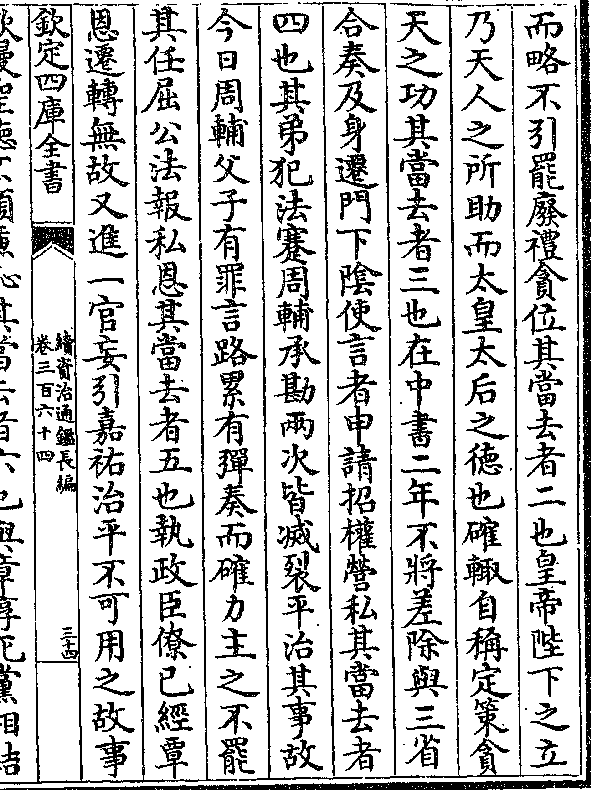 而略不引罷廢禮貪位其當去者二也皇帝陛下之立
乃天人之所助而太皇太后之德也確輙自稱定策貪
天之功其當去者三也在中書二年不將差除與三省
合奏及身遷門下陰使言者申請招權營私其當去者
四也其弟犯法蹇周輔承勘兩次皆滅裂平治其事故
今日周輔父子有罪言路累有彈奏而確力主之不罷
其任屈公法報私恩其當去者五也執政臣僚已經覃
恩遷轉無故又進一官妄引嘉祐治平不可用之故事
欽定四庫全書
續資治通鑑長編
卷三百六十四
三十四
聖德不顧
其當去者六也與章惇死黨相結